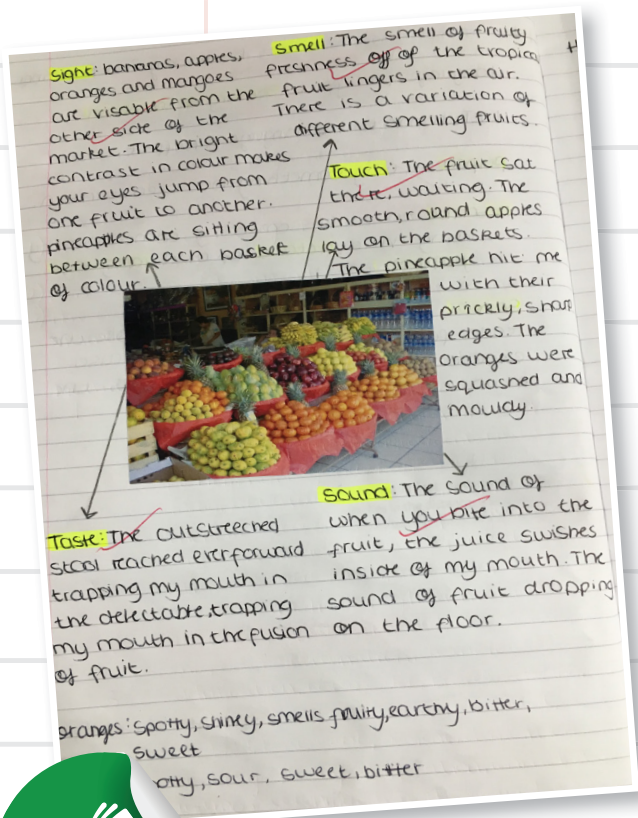 Sight: bananas, apples,
oranges and mangoes
are visable from the
other side of the
market. The bright
contrast in colour makes
your eyes jump from
one fruit to another.
pineapples are sitting
between each basket
of colour.
Smell: The smell of fruity
freshness off of the tropica
fruit lingers in the air.
There is a variation of
different smelling fruits.
Touch: The fruit sat
there, waiting. The
smooth, round apples
lay on the baskets.
The pineapple hit me
with their
prickly, shar
edges. The
oranges were
squashed and
mowldy.
Taste: The outstreeched
stool reached everforward
trapping my mouth in
the delectable, trapping
my mouth in the fusion
of fruit.
Sound: The sound of
when you bite into the
fruit, the juice swishes
inside of my mouth. The
sound of fruit dropping
on the floor.
oranges: spotty, shiney, smells fruity, earthy, bitter,
sweet
otty, sour, sweet, bitter